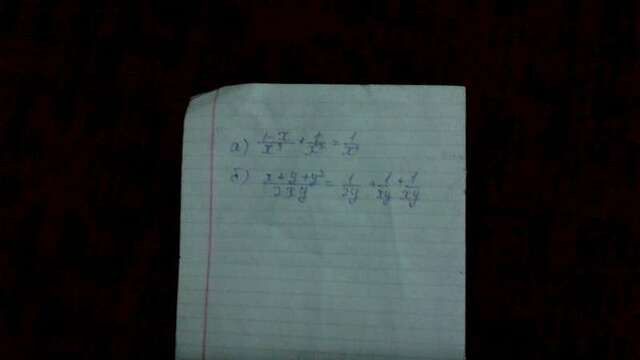 а) (1-x)/x² + 1/x² = 1/x²
б) (x+y+y²)/(2xy) = 1/(2y) + 1/(xy) + 1/(xy)